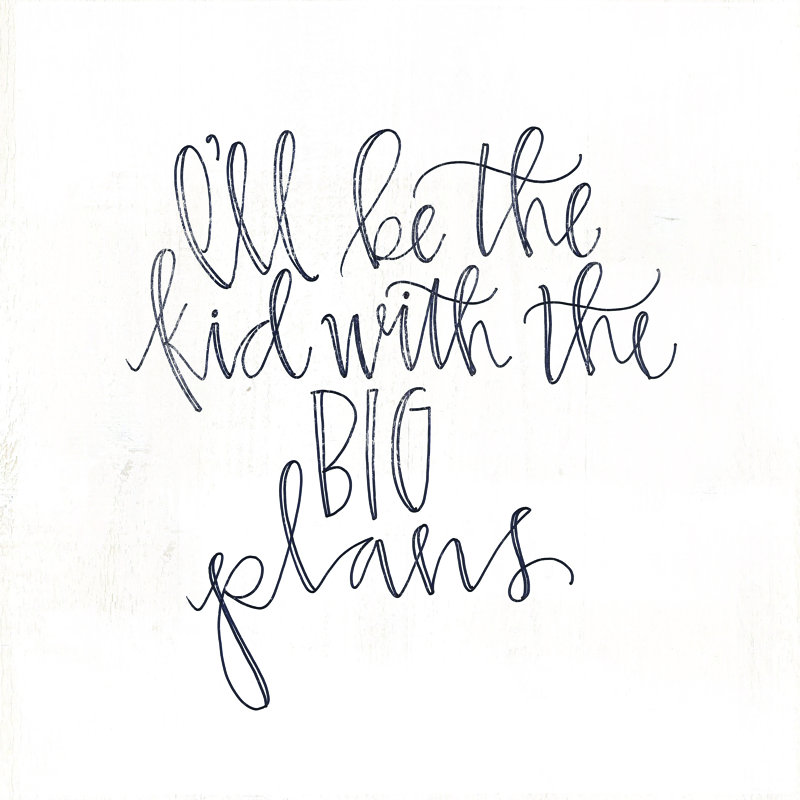 I'll be the
kid with the
BIG
plans